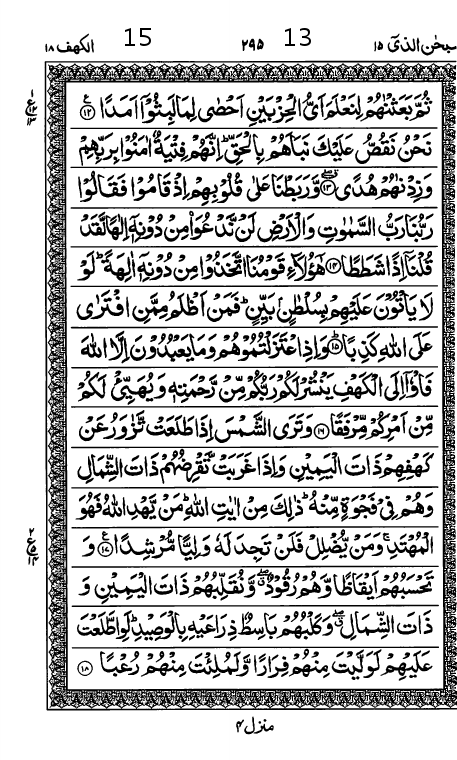 سبحٰن الذیٓ ١٥ 13 ٢٩٥ 15 الکهف ١٨
ثُمَّ بَعَثْنٰهُمْ لِنَعْلَمَ اَىُّ الْحِزْبَيْنِ اَحْصٰى لِمَا لَبِثُوْۤا اَمَدًا ﴿١٢﴾ ع
نَحْنُ نَقُصُّ عَلَيْكَ نَبَاَهُمْ بِالْحَقِّ ؕ اِنَّهُمْ فِتْيَةٌ اٰمَنُوْا بِرَبِّهِمْ
وَزِدْنٰهُمْ هُدًى ﴿١٣﴾ وَّرَبَطْنَا عَلٰى قُلُوْبِهِمْ اِذْ قَامُوْا فَقَالُوْا
رَبُّنَا رَبُّ السَّمٰوٰتِ وَالْاَرْضِ لَنْ نَّدْعُوَا۟ مِنْ دُوْنِهٖۤ اِلٰهًا لَّقَدْ
قُلْنَاۤ اِذًا شَطَطًا ﴿١٤﴾ هٰۤؤُلَآءِ قَوْمُنَا اتَّخَذُوْا مِنْ دُوْنِهٖۤ اٰلِهَةً ؕ لَوْ
لَا يَاْتُوْنَ عَلَيْهِمْ بِسُلْطٰنٍۭ بَيِّنٍ ؕ فَمَنْ اَظْلَمُ مِمَّنِ افْتَرٰى
عَلَى اللّٰهِ كَذِبًا ﴿١٥﴾ ؕ وَاِذِ اعْتَزَلْتُمُوْهُمْ وَمَا يَعْبُدُوْنَ اِلَّا اللّٰهَ
فَاْوٗۤا اِلَى الْكَهْفِ يَنْشُرْ لَكُمْ رَبُّكُمْ مِّنْ رَّحْمَتِهٖ وَيُهَيِّئْ لَكُمْ
مِّنْ اَمْرِكُمْ مِّرْفَقًا ﴿١٦﴾ وَتَرَى الشَّمْسَ اِذَا طَلَعَتْ تَّزٰوَرُ عَنْ
كَهْفِهِمْ ذَاتَ الْيَمِيْنِ وَاِذَا غَرَبَتْ تَّقْرِضُهُمْ ذَاتَ الشِّمَالِ
وَهُمْ فِىْ فَجْوَةٍ مِّنْهُ ؕ ذٰلِكَ مِنْ اٰيٰتِ اللّٰهِ ؕ مَنْ يَّهْدِ اللّٰهُ فَهُوَ
الْمُهْتَدِ ۚ وَمَنْ يُّضْلِلْ فَلَنْ تَجِدَ لَهٗ وَلِيًّا مُّرْشِدًا ﴿١٧﴾ ع وَ
تَحْسَبُهُمْ اَيْقَاظًا وَّهُمْ رُقُوْدٌ ۖ ق وَّنُقَلِّبُهُمْ ذَاتَ الْيَمِيْنِ وَ
ذَاتَ الشِّمَالِ ۖ ق وَكَلْبُهُمْ بَاسِطٌ ذِرَاعَيْهِ بِالْوَصِيْدِ ؕ لَوِ اطَّلَعْتَ
عَلَيْهِمْ لَوَلَّيْتَ مِنْهُمْ فِرَارًا وَّلَمُلِئْتَ مِنْهُمْ رُعْبًا ﴿١٨﴾
منزل ٤